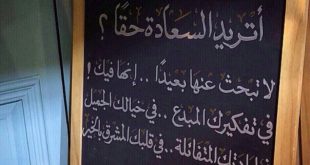 أتريد السعادة حقًا ؟
لا تبحث عنها بعيدًا .. إنها فيك !
في تفكيرك المبدع .. في خيالك الجميل
المتفائلة .. في قلبك المشرق بالخير